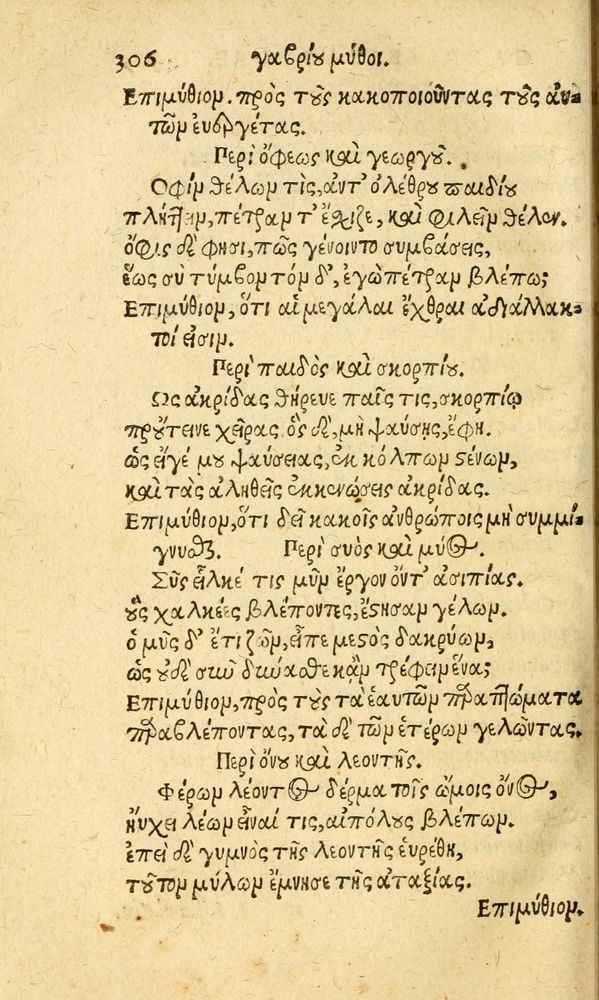 306 γαβρίου μῦθοι.
Επιμύθιομ. πρὸς τοὺς κακοποιοῦντας τοὺς αὐ-
τῶμ ευεργέτας.
Περὶ ὄφεως καὶ γεωργοῦ.
Οφιμ θέλωμ τὶς, ἀντ' ὀλέθρου παιδίου
πλήττειμ, πέτραμ τ' ἔσχιζε, καὶ φιλεῖμ θέλωμ.
ὄφις δὲ φησι, πῶς γένοιντο συμβάσεις,
ἕως συ τύμβομ τόμ δ', ἐγὼ πέτραμ βλέπω;
Επιμύθιομ, ὅτι αἱ μεγάλαι ἔχθραι αδιάλλακ-
τοί εισιμ.
Περὶ παιδὸς καὶ σκορπίου.
Ως ακρίδας θήρευε παῖς τις, σκορπίῳ
προύτεινε χεῖρας ὃς δὲ, μὴ ψαύσῃς, ἔφη.
ὡς εἴγέ μου ψαύσειας, ἐκ κόλπωμ στένωμ,
καὶ τὰς ἀληθεῖς ἐκκενώσεις ακρίδας.
Επιμύθιομ, ὅτι δεῖ κακοῖς ἀνθρώποις μὴ συμμί-
γνυσθαι. Περὶ συὸς καὶ μύος.
Σῦς εἷλκέ τις μῦμ ἔργον ὄντ' ασιτίας.
οὓς χαλκέες βλέποντες, ἔστησαμ γέλωμ.
ὁ μῦς δ' ἔτι ζῶμ, εἶπε μεστὸς δακρύωμ,
ὡς οὐδὲ σῦν δύνασθε κἂμ τρέφειμ ἕνα;
Επιμύθιομ, πρὸς τοὺς τὰ ἑαυτῶμ πραπτώματα
παραβλέποντας, τὰ δὲ τῶμ ἑτέρωμ γελῶντας.
Περὶ ὄνου καὶ λεοντῆς.
Φέρωμ λέοντος δέρμα τοῖς ὤμοις ὄνος,
ηὔχει λέωμ εἶναί τις, αἰπόλους βλέπωμ.
ἐπεὶ δὲ γυμνὸς τῆς λεοντῆς εὑρέθη,
τοῦτομ μύλωμ ἔμνησε τῆς ἀταξίας.
Επιμύθιομ.